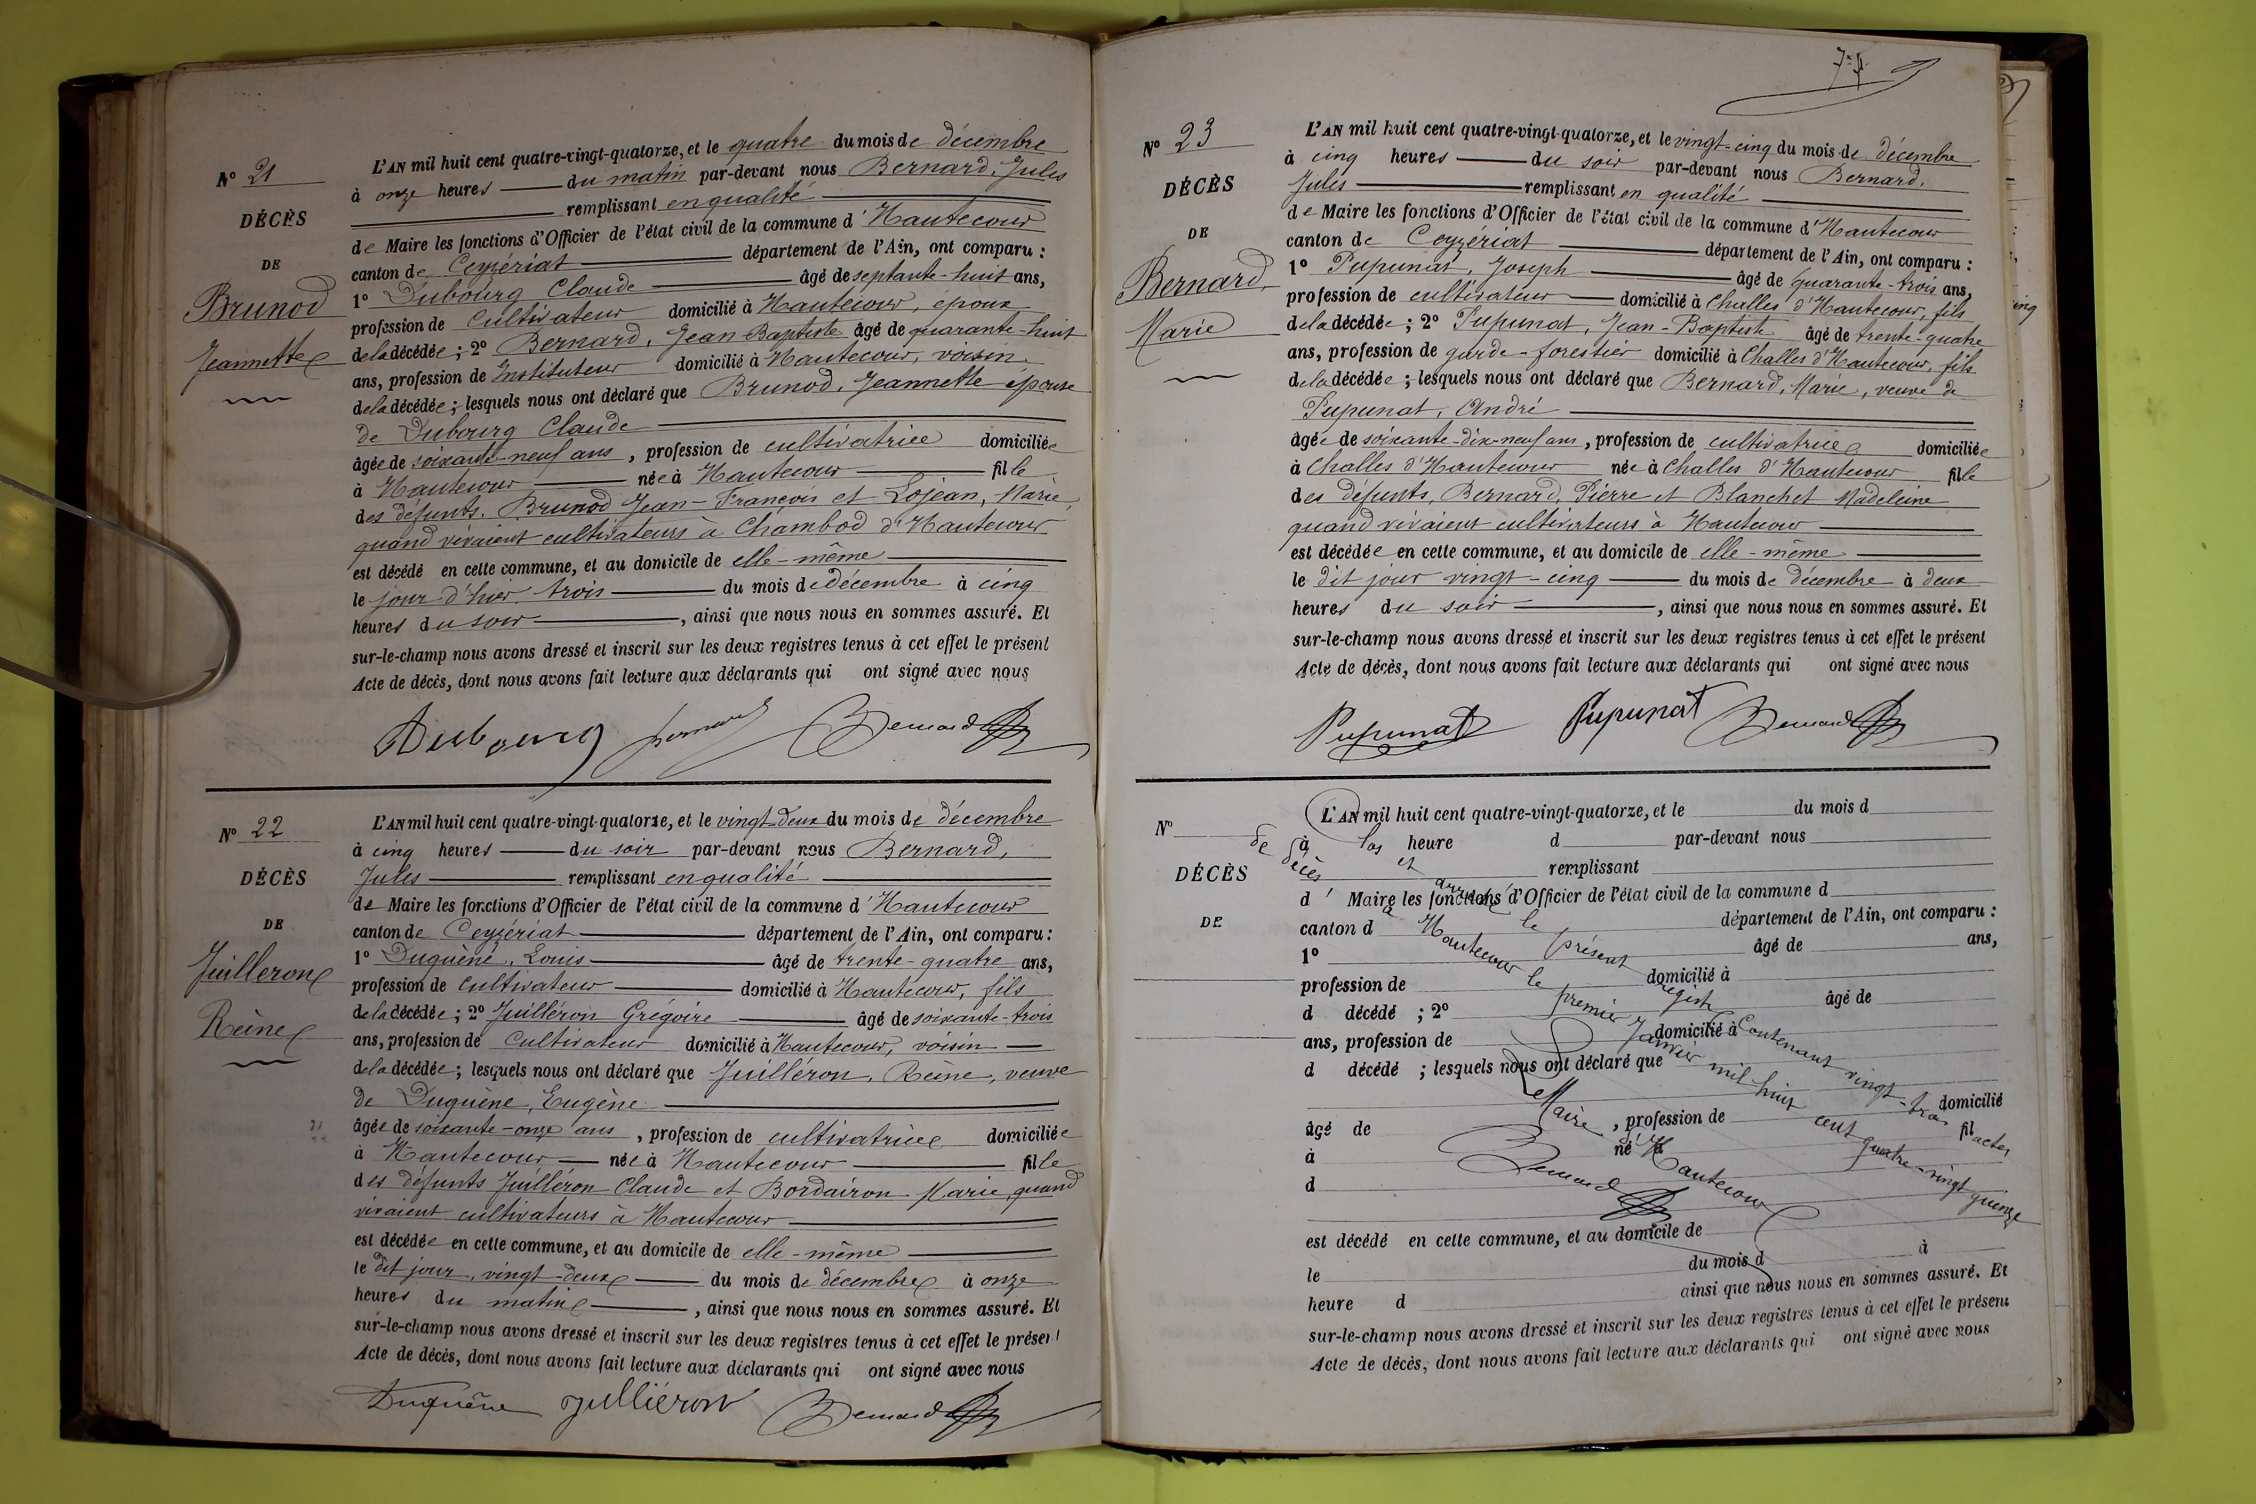 N° 21
DÉCÈS
DE
Brunod
Jeannette
L'AN mil huit cent quatre-vingt-quatorze, et le quatre du mois de décembre
à onze heures du matin par-devant nous Bernard, Jules
remplissant en qualité
de Maire les fonctions d'Officier de l'état civil de la commune d'Hautecour
canton de Ceyzériat département de l'Ain, ont comparu :
1° Dubourg Claude âgé de septante-huit ans,
profession de Cultivateur domicilié à Hautecour, époux
de la décédée ; 2° Bernard, Jean Baptiste âgé de quarante-huit
ans, profession de Instituteur domicilié à Hautecour, voisin
de la décédée ; lesquels nous ont déclaré que Brunod, Jeannette épouse
de Dubourg Claude
âgée de soixante-neuf ans, profession de cultivatrice domiciliée
à Hautecour née à Hautecour fille
des défunts. Brunod Jean-François et Lojean, Marie,
quand vivaient cultivateurs à Chambod d'Hautecour
est décédé en cette commune, et au domicile de elle-même
le jour d'hier trois du mois de décembre à cinq
heures du soir, ainsi que nous nous en sommes assuré. Et
sur-le-champ nous avons dressé et inscrit sur les deux registres tenus à cet effet le présent
Acte de décès, dont nous avons fait lecture aux déclarants qui ont signé avec nous
Dubourg Bernard Bernard
N° 22
DÉCÈS
DE
Juilleron
Reine
L'AN mil huit cent quatre-vingt-quatorze, et le vingt-deux du mois de décembre
à cinq heures du soir par-devant nous Bernard,
Jules remplissant en qualité
de Maire les fonctions d'Officier de l'état civil de la commune d'Hautecour
canton de Ceyzériat département de l'Ain, ont comparu :
1° Duquène, Louis âgé de trente-quatre ans,
profession de Cultivateur domicilié à Hautecour, fils
de la décédée ; 2° Juilléron Grégoire âgé de soixante-trois
ans, profession de Cultivateur domicilié à Hautecour, voisin
de la décédée ; lesquels nous ont déclaré que Juilléron, Reine, veuve
de Duquène, Eugène
âgée de soixante-onze ans, profession de cultivatrice domiciliée
à Hautecour née à Hautecour fille
des défunts Juilléron Claude et Bordairon Marie, quand
vivaient cultivateurs à Hautecour
est décédée en cette commune, et au domicile de elle-même
le dit jour, vingt-deux du mois de décembre à onze
heures du matin, ainsi que nous nous en sommes assuré. Et
sur-le-champ nous avons dressé et inscrit sur les deux registres tenus à cet effet le présent
Acte de décès, dont nous avons fait lecture aux déclarants qui ont signé avec nous
Duquène Julliéron Bernard
N° 23
DÉCÈS
DE
Bernard,
Marie
L'AN mil huit cent quatre-vingt-quatorze, et le vingt-cinq du mois de décembre
à cinq heures du soir par-devant nous Bernard.
Jules remplissant en qualité
de Maire les fonctions d'Officier de l'état civil de la commune d'Hautecour
canton de Ceyzériat département de l'Ain, ont comparu :
1° Pupunat, Joseph âgé de quarante-trois ans,
profession de cultivateur domicilié à Challes d'Hautecour, fils
de la décédée ; 2° Pupunat, Jean-Baptiste âgé de trente-quatre
ans, profession de garde-forestier domicilié à Challes d'Hautecour, fils
de la décédée ; lesquels nous ont déclaré que Bernard, Marie, veuve de
Pupunat, André
âgée de soixante-dix-neuf ans, profession de cultivatrice domiciliée
à Challes d'Hautecour née à Challes d'Hautecour fille
des défunts, Bernard, Pierre et Blanchet Madeleine
quand vivaient cultivateurs à Hautecour
est décédée en cette commune, et au domicile de elle-même
le dit jour vingt-cinq du mois de décembre à deux
heures du soir, ainsi que nous nous en sommes assuré. Et
sur-le-champ nous avons dressé et inscrit sur les deux registres tenus à cet effet le présent
Acte de décès, dont nous avons fait lecture aux déclarants qui ont signé avec nous
Pupunat Pupunat Bernard
N°
DÉCÈS
DE
L'AN mil huit cent quatre-vingt-quatorze, et le du mois d
à heure d par-devant nous
remplissant
d Maire les fonctions d'Officier de l'état civil de la commune d
canton d département de l'Ain, ont comparu :
1° âgé de ans,
profession de domicilié à
d décédé ; 2° âgé de
ans, profession de domicilié à
d décédé ; lesquels nous ont déclaré que
âgé de , profession de domicilié
à né à fil
d
est décédé en cette commune, et au domicile de
le du mois d à
heure d ainsi que nous nous en sommes assuré. Et
sur-le-champ nous avons dressé et inscrit sur les deux registres tenus à cet effet le présent
Acte de décès, dont nous avons fait lecture aux déclarants qui ont signé avec nous
Clos et arrêté le présent registre contenant vingt-trois actes
de décès
à Hautecour le premier Janvier mil huit cent quatre-vingt quinze
Le Maire d'Hautecour
Bernard